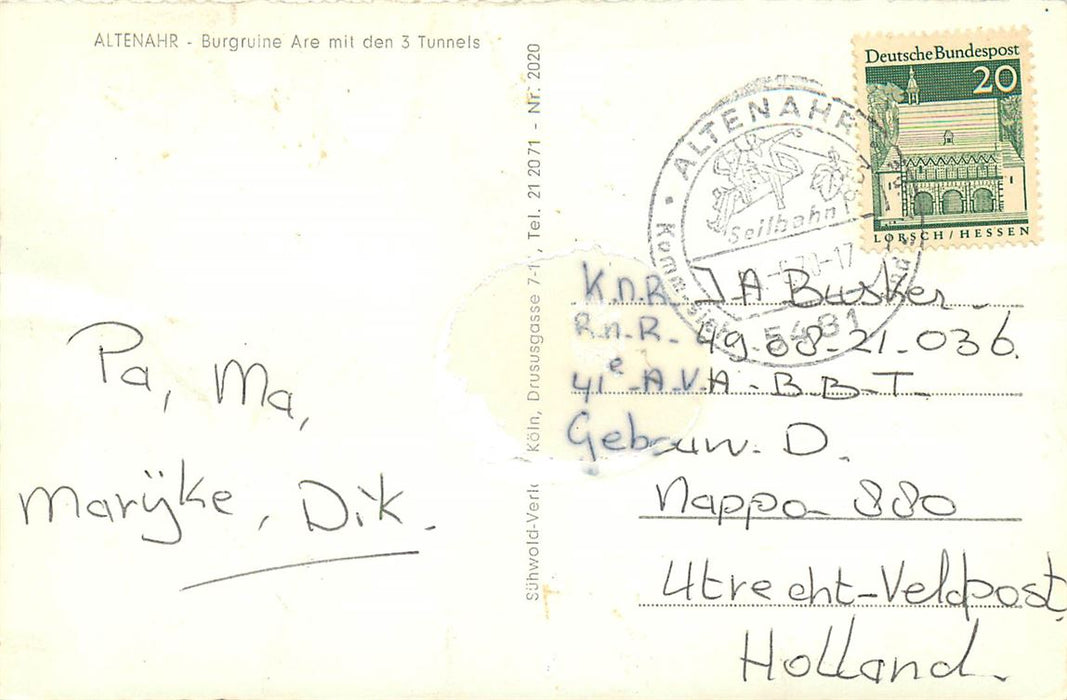 ALTENAHR - Burgruine Are mit den 3 Tunnels
Pa, Ma,
Marijke, Dik.
Köln, Drususgasse 7-1 , Tel. 21 20 71 - Nr. 2020
Deutsche Bundespost
20
LORSCH / HESSEN
ALTENAHR
Seilbahn
70-17
5481
K.n.R. JA Busker.
R.n.R. 49-08-21-036.
41e A.V.A. B.B.T.
Gebouw. D.
Nappo 880
Utrecht-Veldpost
Holland.